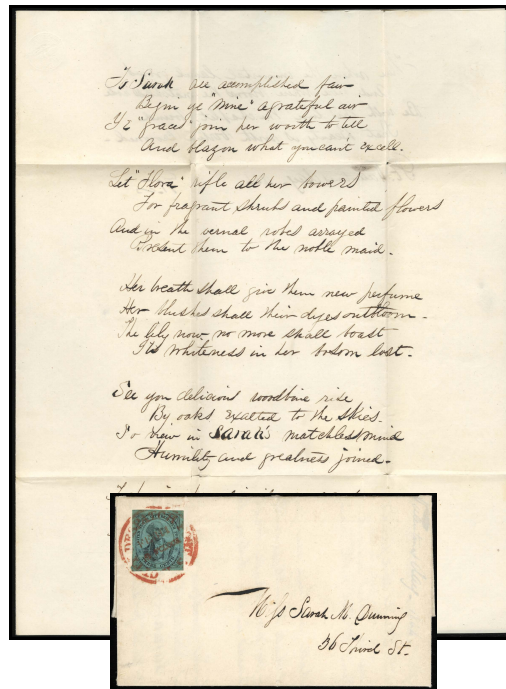 To Sarah all accomplished fair
Begin ye "Nine" a grateful air
Ye "graces" join her worth to tell
And blazon what you can't excell.
Let "Flora" rifle all her bowers
For fragrant shrubs and painted flowers
And in the vernal robes arrayed
Present them to the noble maid.
Her breath shall give them new perfume
Her blushes shall their dyes outbloom.
The lily now no more shall boast
Its whiteness in her bosom lost.
See you delicious woodbine rise
By oaks exalted to the skies.
To view in Sarah's matchless mind
Humility and greatness joined.
Miss Sarah M. Dunning
56 Third St.